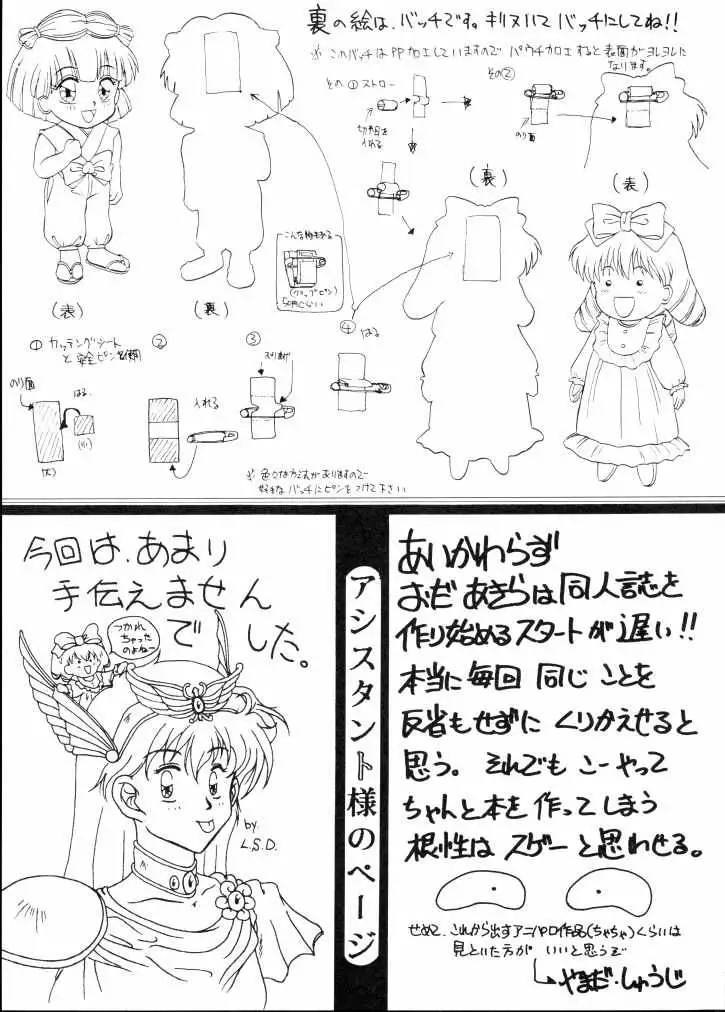 裏の絵は、バッチです。キリヌいて バッチにしてね!!
※ このバッチはPP加工していますので パウチ加工すると表面がヨレヨレに
なります。
その①ストロー
その②
切れ目を
入れる
のり面
(裏)
(表)
こんな物もある
(クリップピン)
(表)
(裏)
① カッティングシート
と安全ピン
②
③
④ はる
のり面
はる
(大)
(小)
入れる
※色々な方法がありますので
好きなバッチにピンをつけて下さい
今回は、あまり
手伝えません
でした。
つかれ
ちゃった
のよねー
by.
L.S.D.
アシスタント様のページ
あいかわらず
おだ あきらは同人誌を
作り始めるスタートが遅い!!
本当に毎回 同じ ことを
反省もせずに くりかえせると
思う。それでも こーやって
ちゃんと本を作ってしまう
根性は スゲーと思わせる。
せめて、これから出すアニパロ作品(ちゃちゃ)くらいは
見といた方が いいと思うぞ
やまだ・しゅうじ